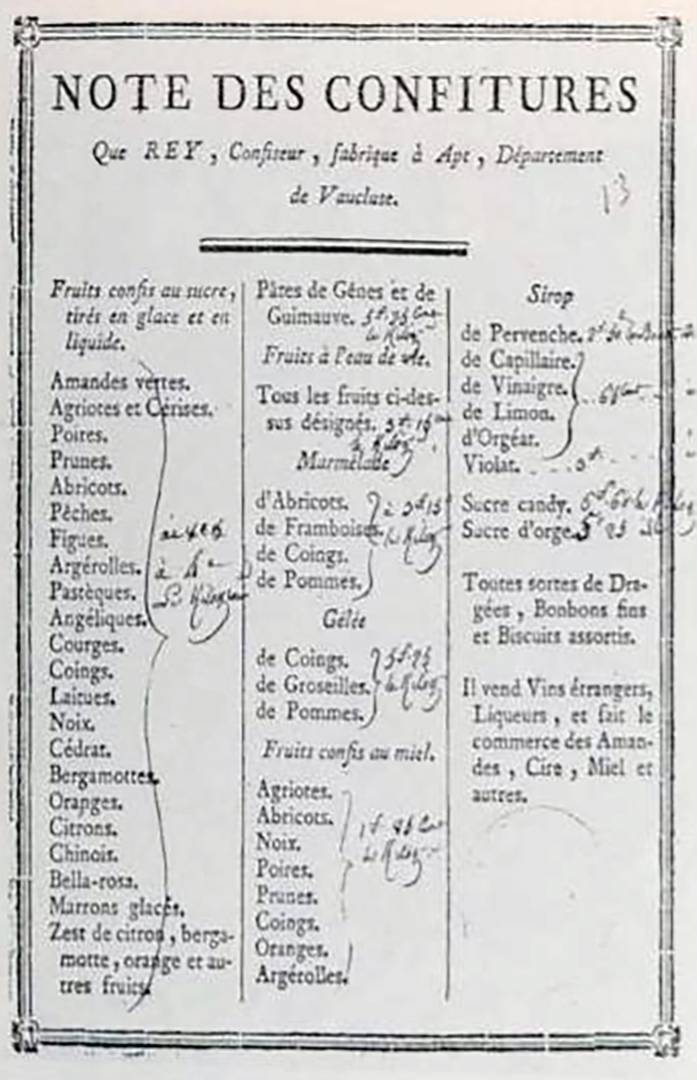 NOTE DES CONFITURES
Que REY, Confiseur, fabrique à Apt, Département
de Vaucluse.
13
Fruits confis au sucre,
tirés en glace et en
liquide.
Amandes vertes.
Agriotes et Cérises.
Poires.
Prunes.
Abricots.
Pêches.
Figues.
Argérolles.
Pastèques.
Angéliques.
Courges.
Coings.
Laitues.
Noix.
Cédrat.
Bergamottes.
Oranges.
Citrons.
Chinois.
Bella-rosa.
Marrons glacés.
Zest de citron, berga-
motte, orange et au-
tres fruits.
Pâtes de Gênes et de
Guimauve.
Fruits à l'eau de vie.
Tous les fruits ci-des-
sus désignés.
Marmelade
d'Abricots.
de Framboises.
de Coings.
de Pommes.
Gélée
de Coings.
de Groseilles.
de Pommes.
Fruits confis au miel.
Agriotes.
Abricots.
Noix.
Poires.
Prunes.
Coings.
Oranges.
Argérolles.
Sirop
de Pervenche.
de Capillaire.
de Vinaigre.
de Limon.
d'Orgéat.
Violat.
Sucre candy.
Sucre d'orge.
Toutes sortes de Dra-
gées, Bonbons fins
et Biscuits assortis.
Il vend Vins étrangers,
Liqueurs, et fait le
commerce des Aman-
des, Cire, Miel et
autres.